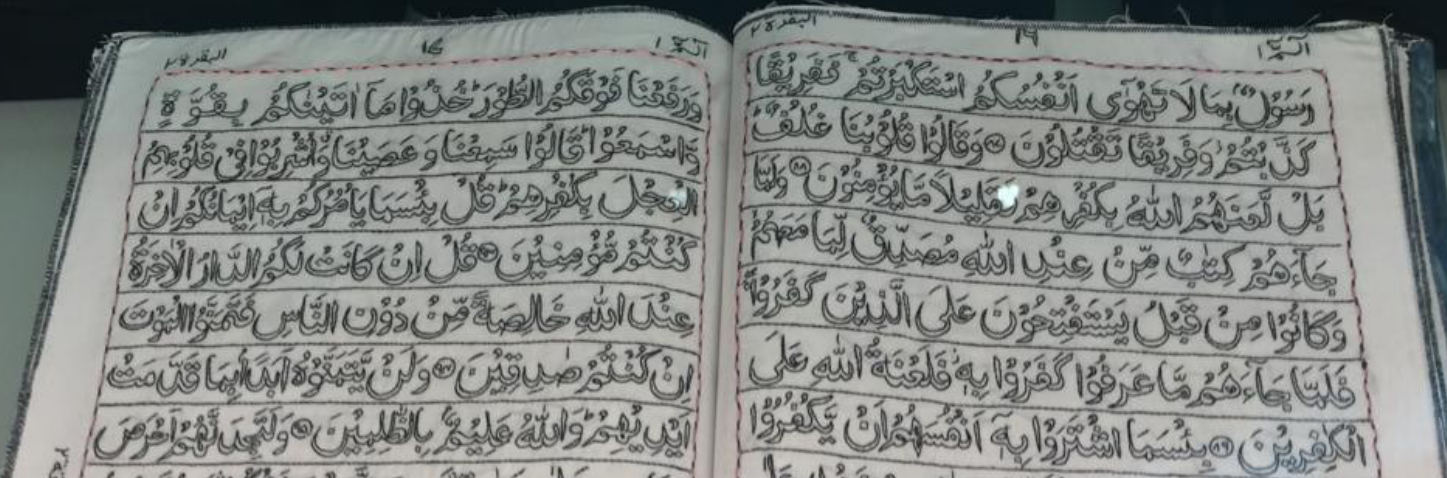 البقرة ٢
١٦
الٓمّٓ ١
رَسُوْلٌۢ بِمَا لَا تَهْوٰۤى اَنْفُسُكُمُ اسْتَكْبَرْتُمْ ۚ فَفَرِيْقًا
كَذَّبْتُمْ ؗ وَفَرِيْقًا تَقْتُلُوْنَ ۝۸۷ وَقَالُوْا قُلُوْبُنَا غُلْفٌ ؕ
بَلْ لَّعَنَهُمُ اللّٰهُ بِكُفْرِهِمْ فَقَلِيْلًا مَّا يُؤْمِنُوْنَ ۝۸۸ وَلَمَّا
جَآءَهُمْ كِتٰبٌ مِّنْ عِنْدِ اللّٰهِ مُصَدِّقٌ لِّمَا مَعَهُمْ
وَكَانُوْا مِنْ قَبْلُ يَسْتَفْتِحُوْنَ عَلَى الَّذِيْنَ كَفَرُوْا ۖۚ
فَلَمَّا جَآءَهُمْ مَّا عَرَفُوْا كَفَرُوْا بِهٖ ؗ فَلَعْنَةُ اللّٰهِ عَلَى
الْكٰفِرِيْنَ ۝۸۹ بِئْسَمَا اشْتَرَوْا بِهٖۤ اَنْفُسَهُمْ اَنْ يَّكْفُرُوْا
البقرة ٢
١٤
الٓمّٓ ١
وَرَفَعْنَا فَوْقَكُمُ الطُّوْرَ ؕ خُذُوْا مَاۤ اٰتَيْنٰكُمْ بِقُوَّةٍ
وَّاسْمَعُوْا ؕ قَالُوْا سَمِعْنَا وَعَصَيْنَا ۗ وَاُشْرِبُوْا فِيْ قُلُوْبِهِمُ
الْعِجْلَ بِكُفْرِهِمْ ؕ قُلْ بِئْسَمَا يَاْمُرُكُمْ بِهٖۤ اِيْمَانُكُمْ اِنْ
كُنْتُمْ مُّؤْمِنِيْنَ ۝۹۳ قُلْ اِنْ كَانَتْ لَكُمُ الدَّارُ الْاٰخِرَةُ
عِنْدَ اللّٰهِ خَالِصَةً مِّنْ دُوْنِ النَّاسِ فَتَمَنَّوُا الْمَوْتَ
اِنْ كُنْتُمْ صٰدِقِيْنَ ۝۹۴ وَلَنْ يَّتَمَنَّوْهُ اَبَدًۢا بِمَا قَدَّمَتْ
اَيْدِيْهِمْ ؕ وَاللّٰهُ عَلِيْمٌۢ بِالظّٰلِمِيْنَ ۝۹۵ وَلَتَجِدَنَّهُمْ اَحْرَصَ